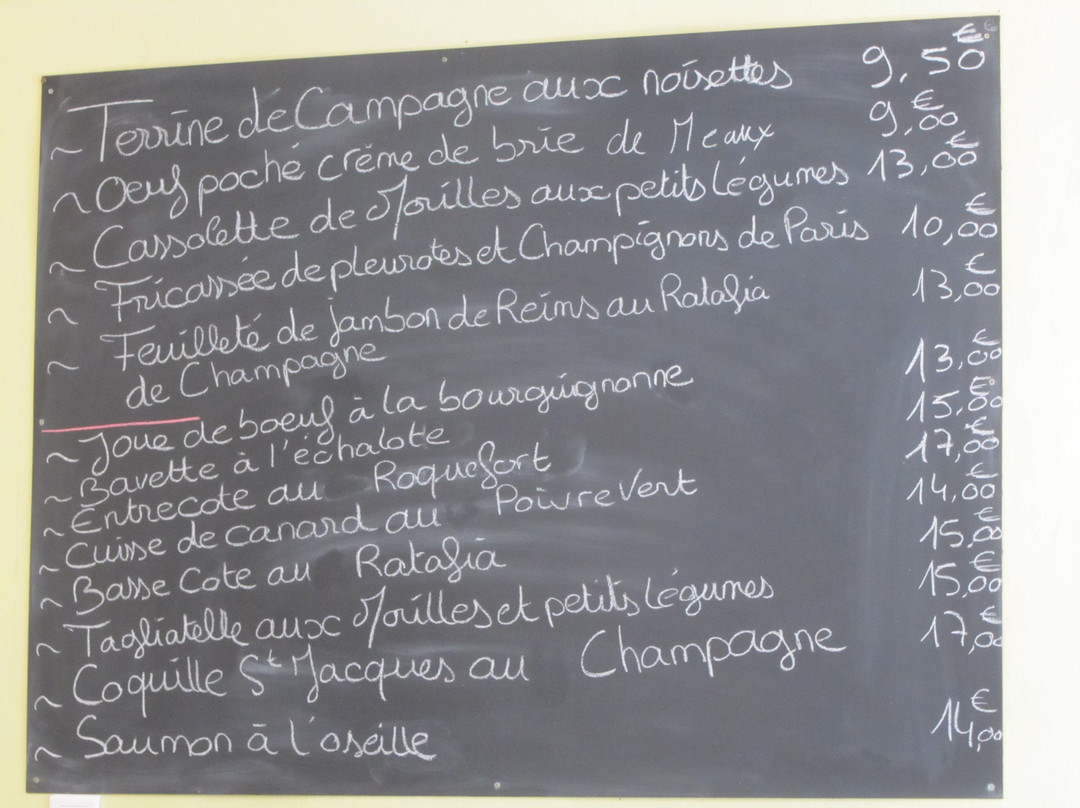 ~ Terrine de Campagne aux noisettes 9,50€
~ Oeuf poché crème de brie de Meaux 9,00€
~ Cassolette de Morilles aux petits légumes 13,00€
~ Fricassée de pleurotes et Champignons de Paris 10,00€
~ Feuilleté de jambon de Reims au Ratafia 13,00€
de Champagne
~ Joue de boeuf à la bourguignonne 13,00€
~ Bavette à l'échalote 15,00€
~ Entrecote au Roquefort 17,00€
~ Cuisse de canard au Poivre Vert 14,00€
~ Basse Cote au Ratafia 15,00€
~ Tagliatelle aux Morilles et petits légumes 15,00€
~ Coquille St Jacques au Champagne 17,00€
~ Saumon à l'oseille 14,00€